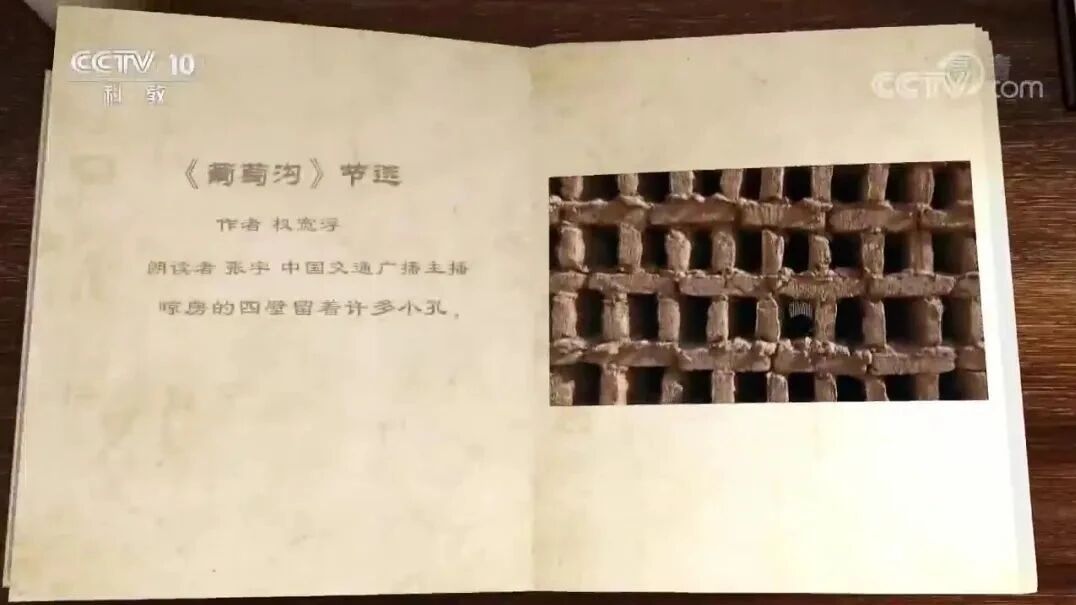 CCTV 10
科教
CCTV.com
《葡萄沟》节选
作者 权宽浮
朗读者 张宇 中国交通广播主播
晾房的四壁留着许多小孔，